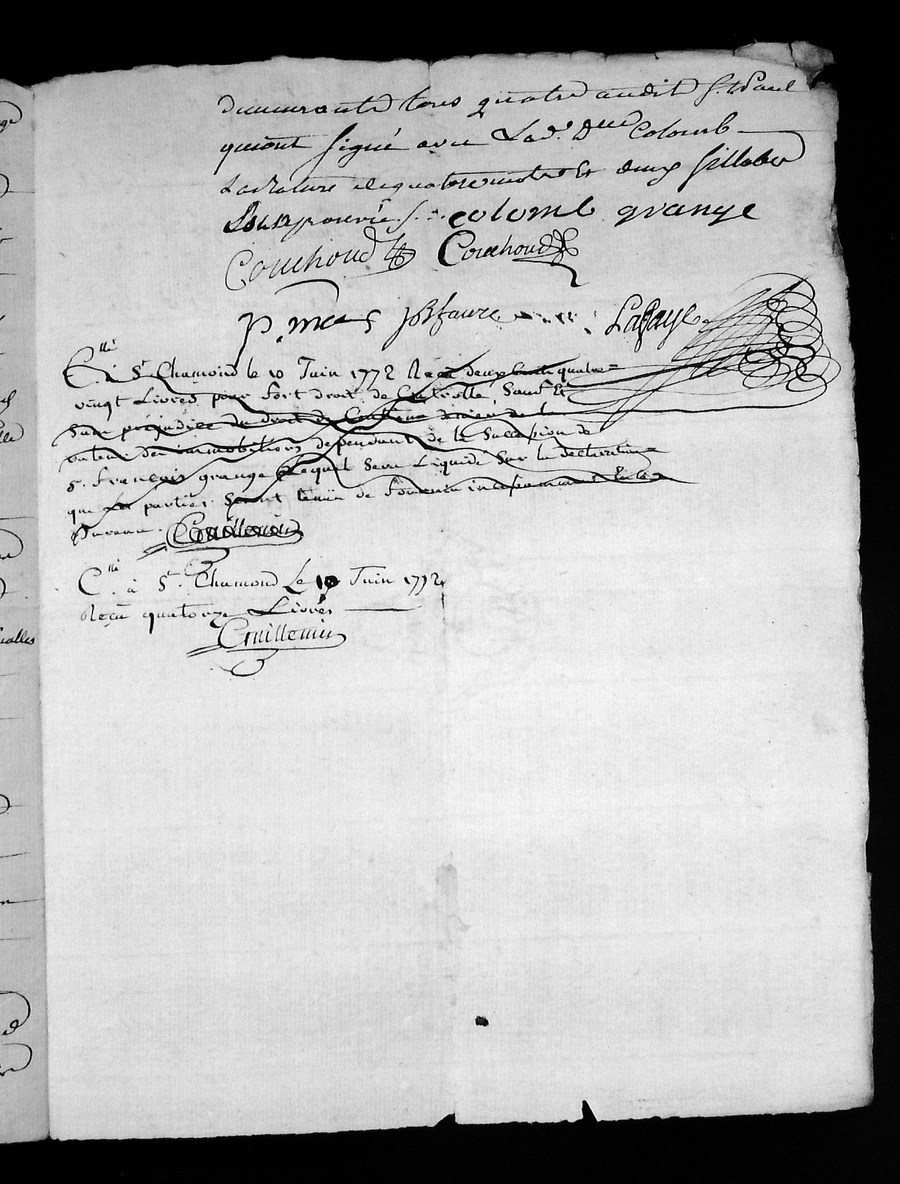 demeurants tous quatre audit St Paul
qui ont signé avec Lad.e Dlle Colomb
La rature de quatre mots Et deux sillabes
aprouvée /. colomb grange
Couchoud Couchoud
p. mas jbt faure Lafaye
C.llé à St. Chamond le 10 Juin 1772 Reçu deux Cent quatre
vingt Livres pour Fort droit de Controlle, Sauf Et
Sans préjudice du droit de Centieme denier de la
valeur des immobiliers dependants de la Succession de
S. François grange Lequel Sera Liquidé Sur la declaration
que Les parties Seront tenus de Fournir
Guillemin
C.llé à St. Chamond Le 10 Juin 1772
Reçu quatorze Livres
Guillemin